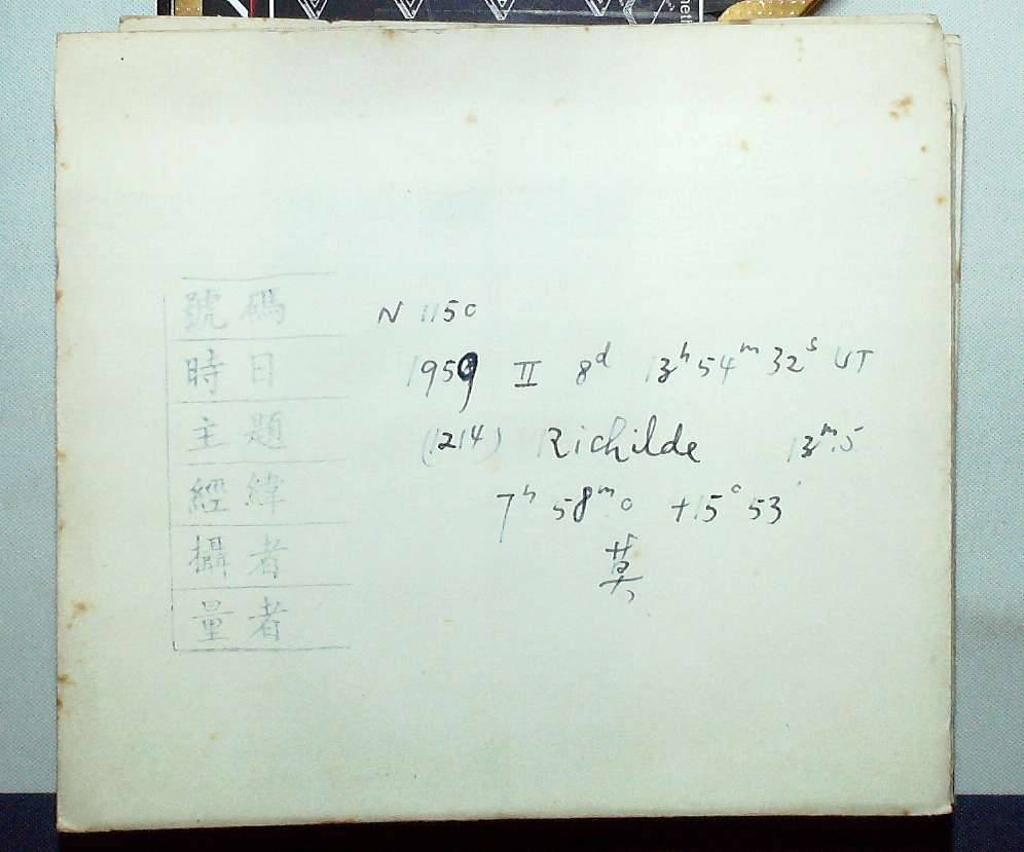 號碼 N 1150
時日 1959 II 8ᵈ 13ʰ 54ᵐ 32ˢ UT
主題 (1214) Richilde 13ᵐ.5
經緯 7ʰ 58ᵐ.0 +15° 53'
攝者 莫
量者